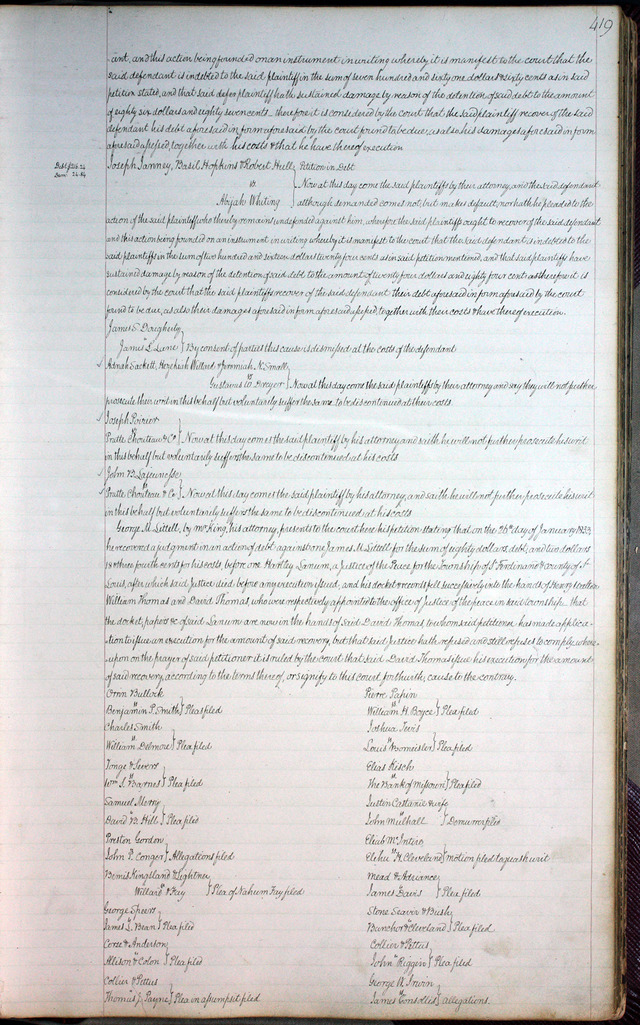 419
ant, and this action being founded on an instrument in writing whereby it is manifest to the court that the
said defendant is indebted to the said plaintiff in the sum of seven hundred and sixty one dollars & sixty cents as in said
petition stated, and that said plaintiff hath sustained damage by reason of the detention of said debt to the amount
of eighty six dollars and eighty seven cents. therefore it is considered by the court that the said plaintiff recover of the said
defendant his debt aforesaid in form aforesaid by the court found to be due, as also his damages aforesaid in form
aforesaid assessed, together with his costs & that he have thereof execution
Debt $216.24
Dam 24.84
Joseph Janney, Basil Hopkins & Robert Hull } Petition in Debt
vs } Now at this day come the said plaintiffs by their attorney, and the said defendant
Abijah Whiting } although demanded comes not, but makes default, nor hath he pleaded to the
action of the said plaintiffs who thereby remains undefended against him, wherefore the said plaintiffs ought to recover of the said defendant
and this action being founded on an instrument in writing whereby it is manifest to the court that the said defendant is indebted to the
said plaintiffs in the sum of two hundred and sixteen dollars twenty four cents as in said petition mentioned, and that said plaintiffs have
sustained damage by reason of the detention of said debt to the amount of twenty four dollars and eighty four cents. therefore it is
considered by the court that the said plaintiffs recover of the said defendant their debt aforesaid in form aforesaid by the court
found to be due, as also their damages aforesaid in form aforesaid assessed, together with their costs & have thereof execution.
James S Dougherty }
James L Lane } By consent of parties this cause is dismissed at the costs of the defendant
Adnah Sackett, Hezekiah Willard & Jeremiah N. Small }
vs
Gustavus W Dreyer } Now at this day come the said plaintiffs by their attorney and say they will not further
prosecute their writ in this behalf but voluntarily suffer the same to be discontinued at their costs.
Joseph Poirier
Pratte Chouteau & Co } Now at this day comes the said plaintiff by his attorney and saith he will not further prosecute his writ
in this behalf but voluntarily suffers the same to be discontinued at his costs
John B. Lajeunesse
Pratte Chouteau & Co } Now at this day comes the said plaintiff by his attorney, and saith he will not further prosecute his writ
in this behalf but voluntarily suffers the same to be discontinued at his costs
George M. Littell, by McKing, his attorney, presents to the court here his petition stating that on the 26th day of January 1833
he recovered a judgment in an action of debt against one James M. Littell for the sum of eighty dollars debt, and two dollars
& three fourth cents for his costs, before one Hartley Lanum, a Justice of the Peace for the Township of St Ferdinand & County of St
Louis, after which said Justice died before any execution issued, and his docket & records fell successively into the hands of Henry
William Thomas and David Thomas, who were respectively appointed to the office of Justice of the peace in said township. that
the docket, papers &c of said Lanum are now in the hands of said David Thomas, to whom said petitioner has made applica-
tion to issue an execution for the amount of said recovery, but that said Justice hath refused and still refuses to comply, where-
upon on the prayer of said petitioner it is ruled by the court that said David Thomas issue his execution for the amount
of said recovery, according to the terms thereof, or signify to this court forthwith, cause to the contrary.
Orrin Bullock
Benjamin P. Smith } Pleas filed
Charles Smith
William Delmore } Plea filed
Tonge & Sevore
Wm S. Barnes } Plea filed
Samuel Merry
David B. Hill } Plea filed
Preston Gordon
John P. Conger } Allegations filed
Bemis Kingsland & Lightner
Willard & Fay } Plea of Nahum Fay filed
George Speers
James L. Bean } Plea filed
Corse & Anderson
Alison & Colon } Plea filed
Collier & Pettus
Thomas J. Payne } Plea in assumpsit filed
Pierre Papin
William H Boyce } Plea filed
Joshua Jevis
Louis Bomeisler } Plea filed
Elias Resch
The Bank of Missouri } Plea filed
Justin Castanie & wife
John Mulhall } Demurrer filed
Eliab McIntire
Elihu H. Cleveland } motion filed to quash writ
Mead & Adriance
James Davis } Plea filed
Stone Seaver & Bush
Bunchor & Cleveland } Plea filed
Collier & Pettus
John Riggin } Plea filed
George R. Irwin
James Consollis } allegations.